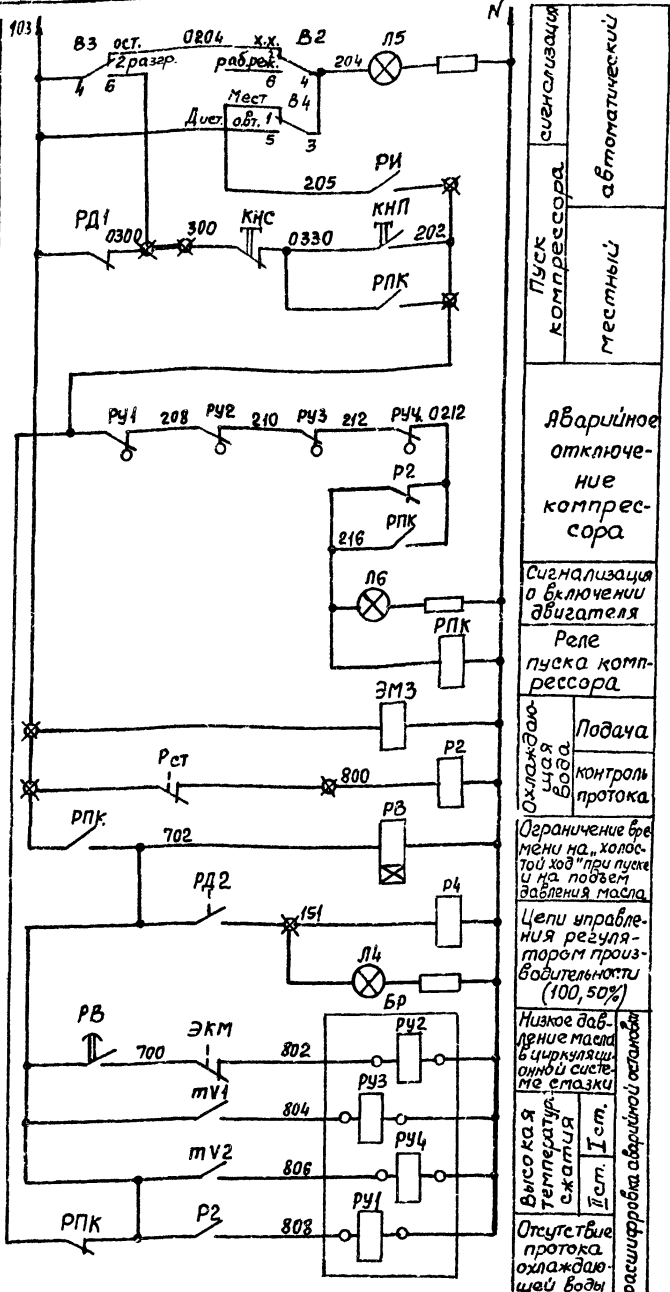 103
N
В3
ост.
0204
х.х.
В2
2 разгр.
раб.реж.
4
6
6
4
204
Л5
Мест
В4
Дист.
авт.
1
5
3
205
РИ
РД1
0300
300
КНС
0330
КНП
202
РПК
РУ1
208
РУ2
210
РУ3
212
РУ4
0212
Р2
216
РПК
Л6
РПК
ЭМ3
Рст
800
Р2
РПК
702
РВ
РД2
151
Р4
Л4
БР
РВ
700
ЭКМ
802
РУ2
mV1
804
РУ3
mV2
806
РУ4
РПК
Р2
808
РУ1
сигнализация
Пуск
компрессора
автоматический
местный
Аварийное
отключе-
ние
компрес-
сора
Сигнализация
о включении
двигателя
Реле
пуска комп-
рессора
Охлаждаю-
щая
вода
Подача
контроль
протока
Ограничение вре
мени на „холос-
той ход" при пуске
и на подъем
давления масла
Цепи управле-
ния регуля-
тором произ-
водительности
(100, 50%)
Низкое дав-
ление масла
в циркуляци-
онной систе-
ме смазки
Высокая
температур.
сжатия
I ст.
II ст.
Отсутствие
протока
охлаждаю-
щей воды
расшифровка аварийной остановки